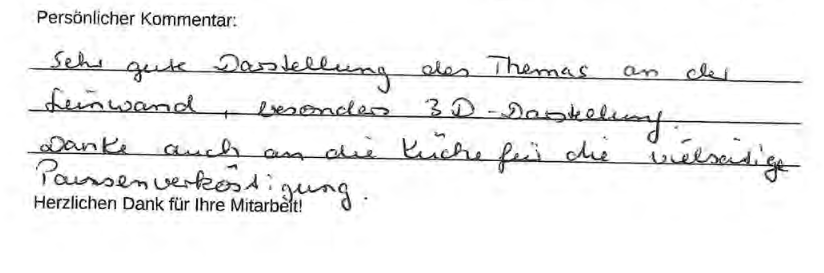 Persönlicher Kommentar:
Sehr gute Darstellung des Themas an der
Leinwand, besonders 3D-Darstellung.
Danke auch an die Küche für die vielseitige
Pausenverköstigung.
Herzlichen Dank für Ihre Mitarbeit!